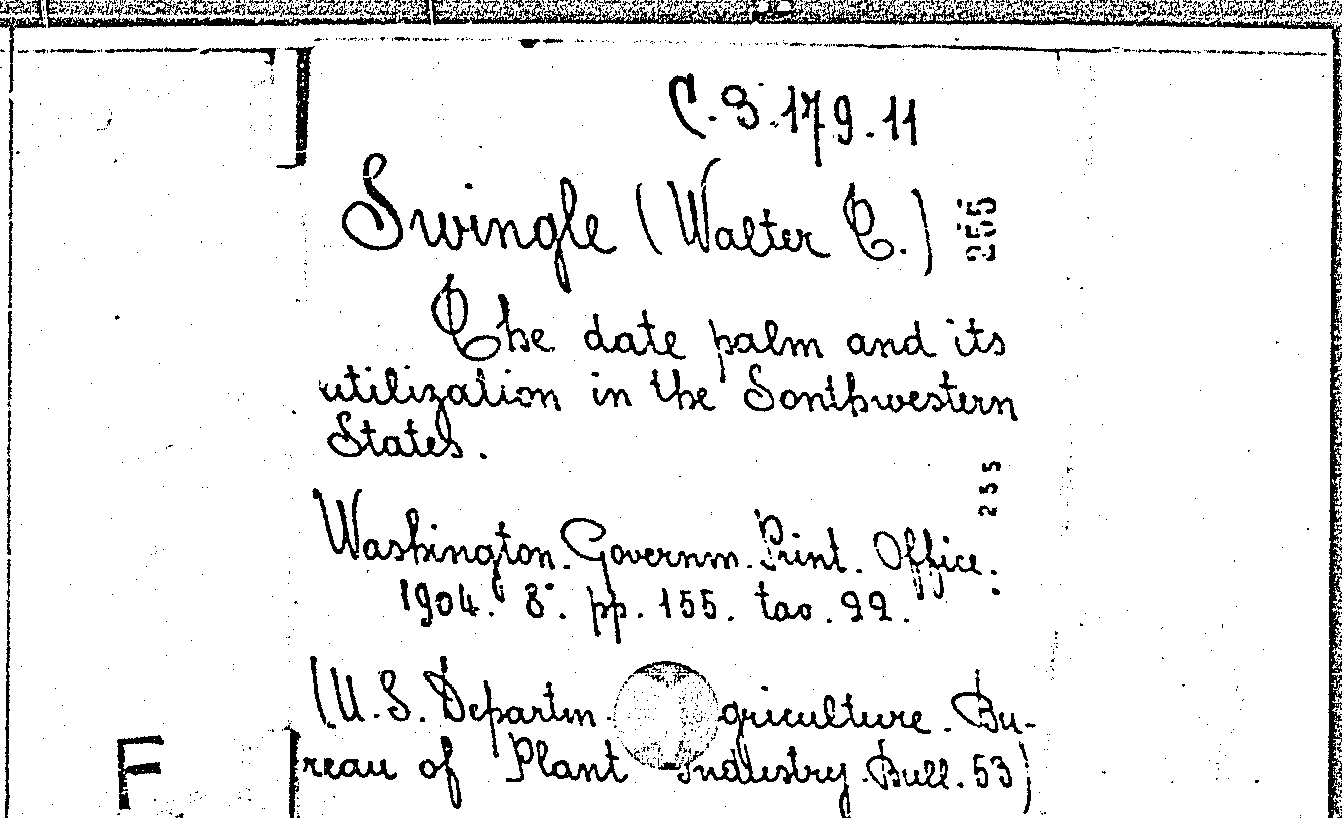 C.3.179.11
Swingle (Walter C.)
255
The date palm and its
utilization in the Southwestern
States.
255
Washington. Governm. Print. Office.
1904. 8°. pp. 155. tav. 22.
(U.S. Departm. griculture. Bu-
reau of Plant Industry. Bull. 53)
F